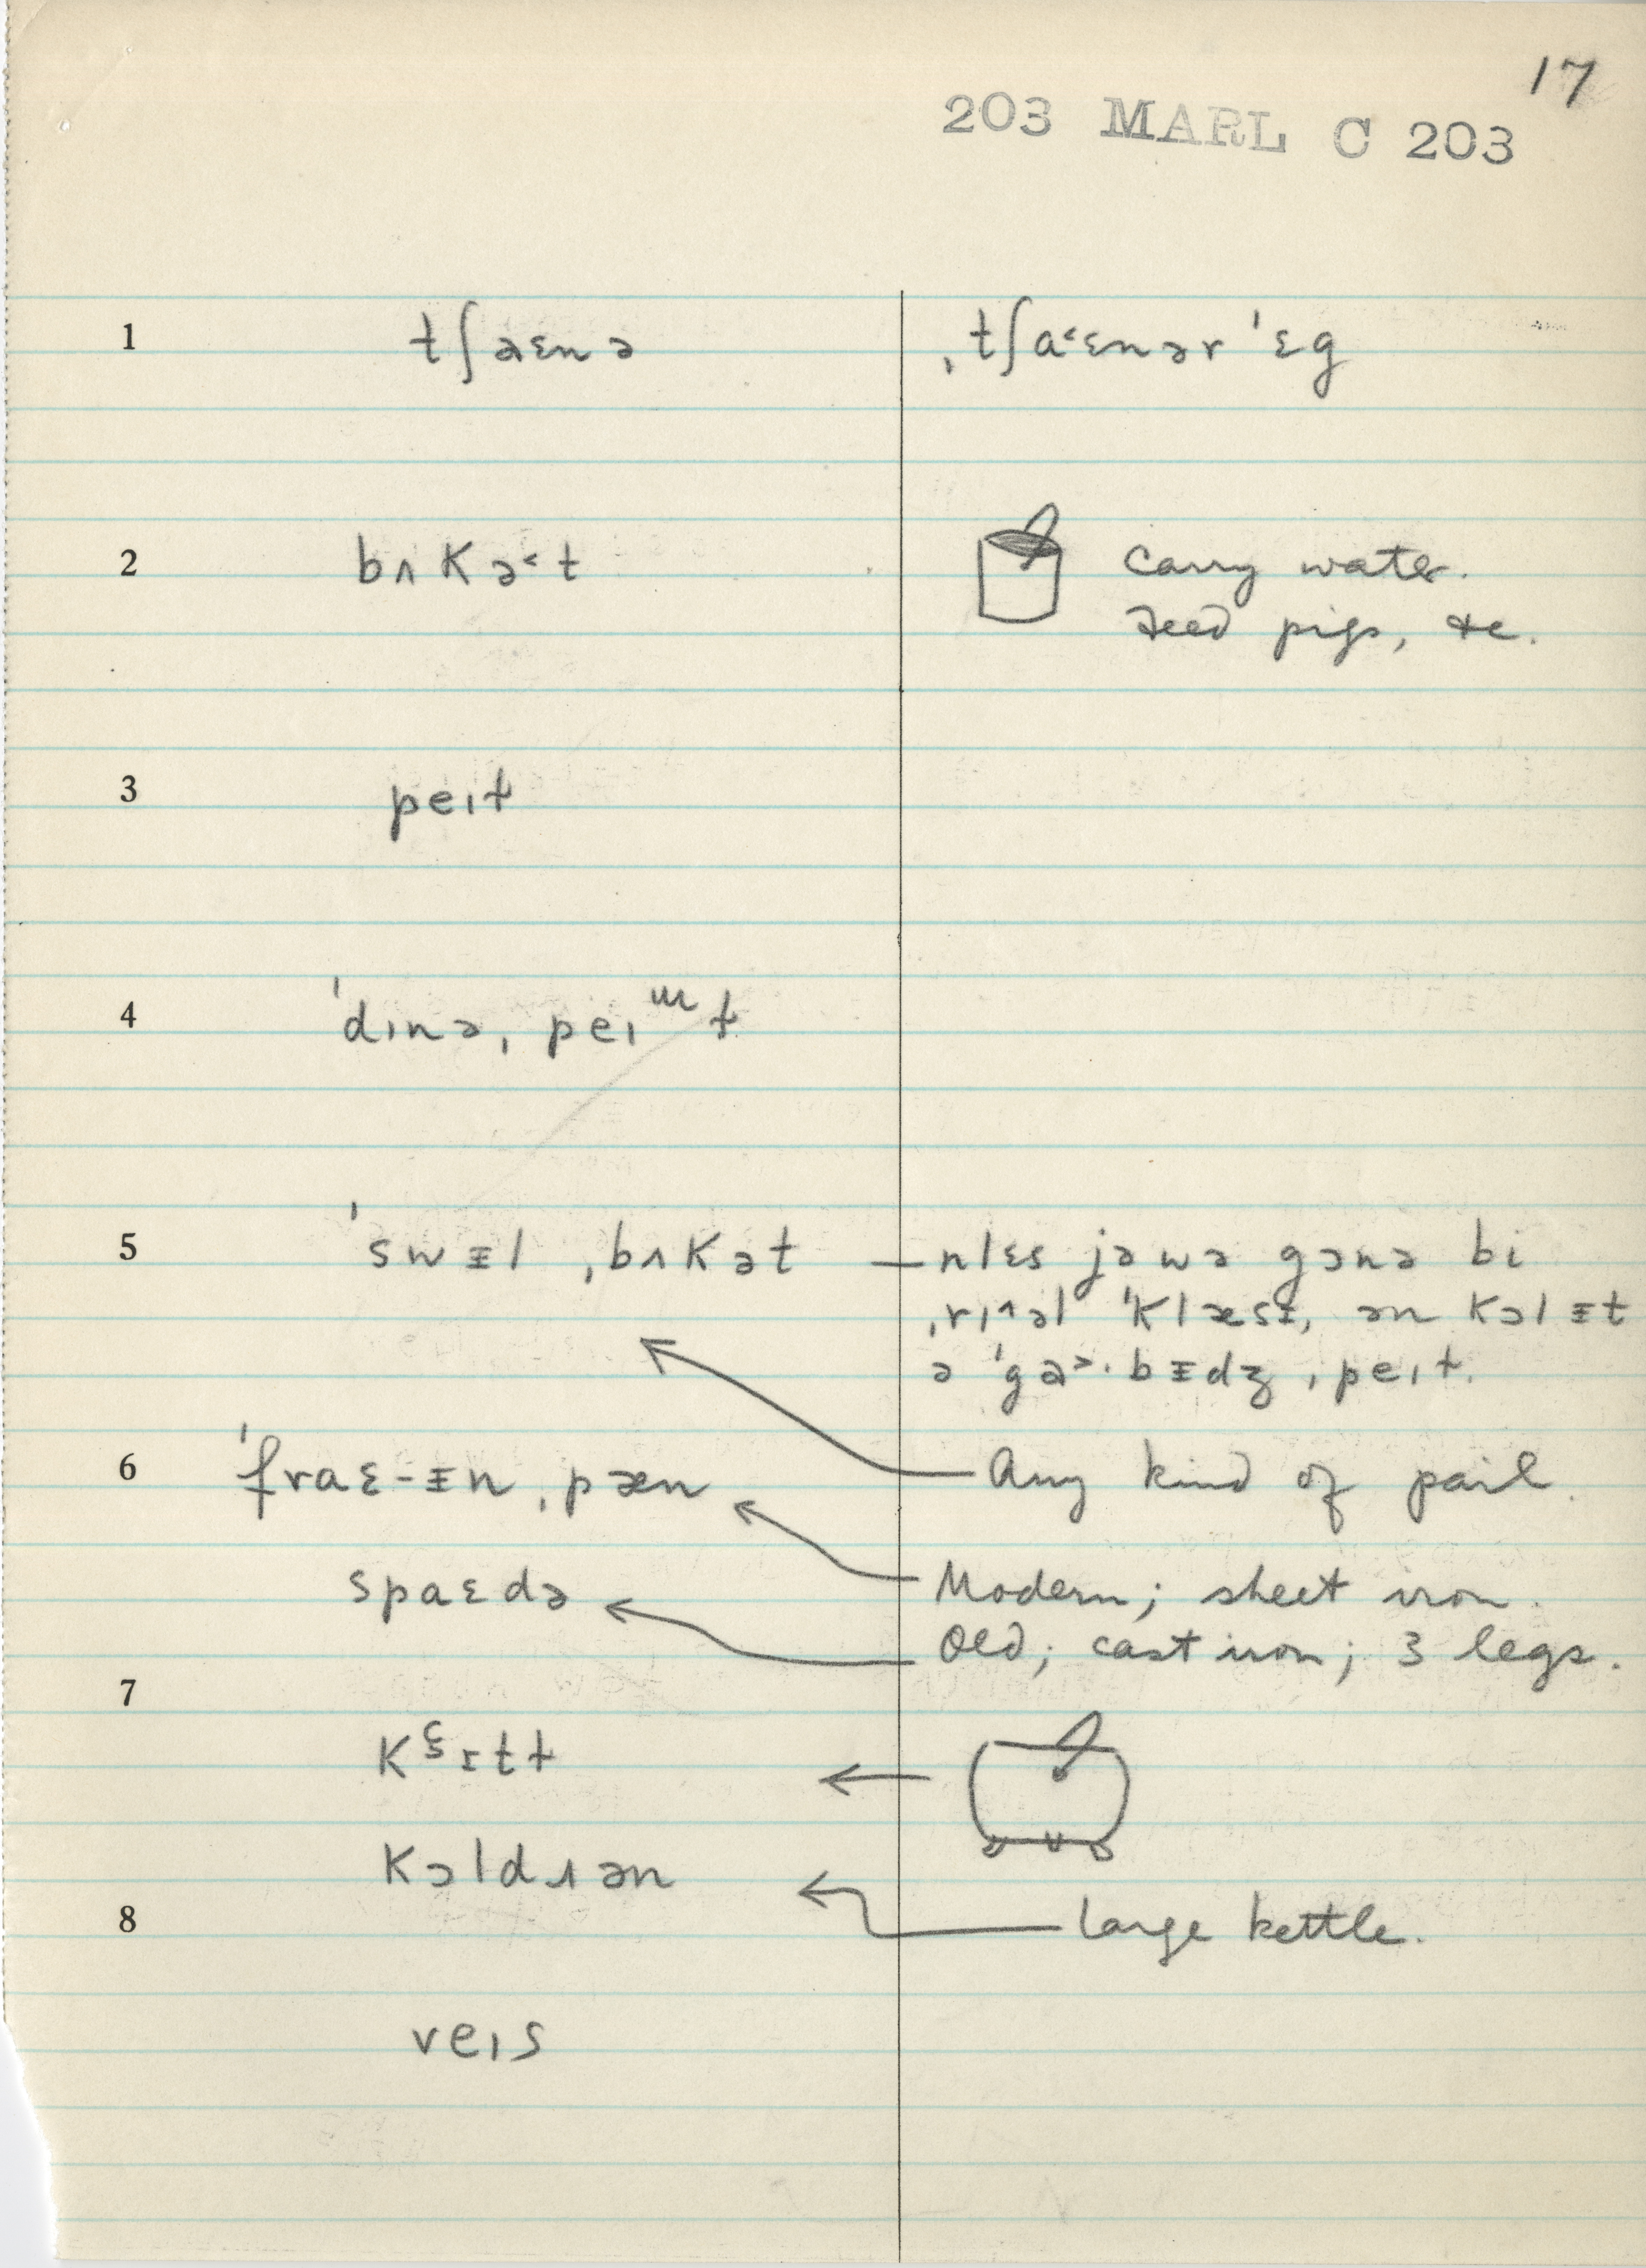 17
203 MARL C 203
1 tʃaɛnə ˌtʃa˂ɛnər ˈɛg
2 bʌkə˂t carry water.
feed pigs, &c.
3 peɪɫ
4 ˈdɪnə ˌpeɪɯɫ
5 ˈswɪ̵l ˌbʌkət — nlɛs jəwə gɔnə bi
ˌrɪ^əl ˈklæsɪ̵, ən kɔlɪ̵t
ə ˈga˃·bɪ̵dʒ ˌpeɪɫ.
6 ˈfraɛ-ɪ̵n ˌpæn Any kind of pail.
spaɛdə Modern; sheet iron.
Old; cast iron; 3 legs.
7
kɛɪtɫ
kɔldɹən
8 large kettle.
veɪs